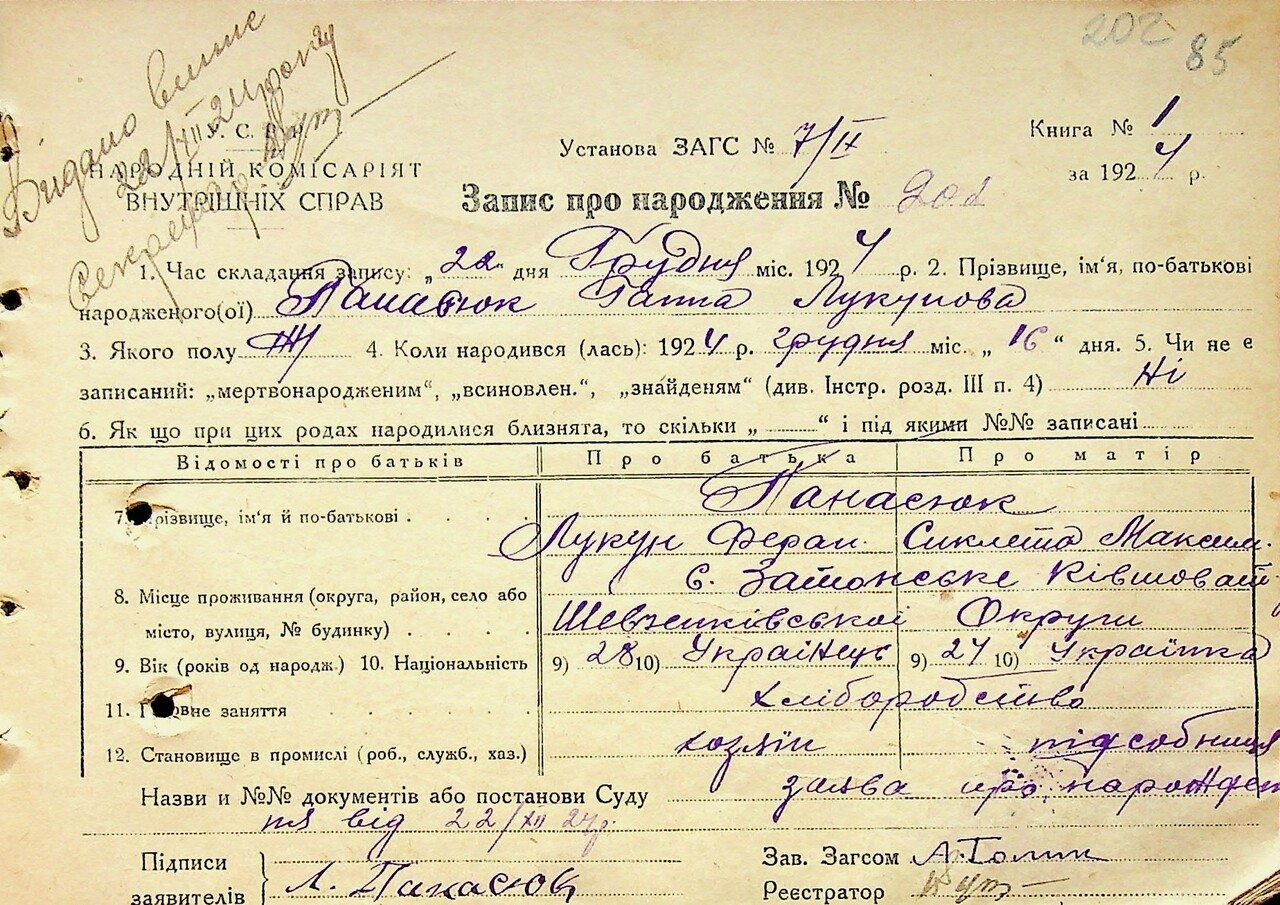 202 85
Видано виписк
22/XII 24 року
Секретар
У. С. Р. Р.
НАРОДНІЙ КОМІСАРІЯТ
ВНУТРІШНІХ СПРАВ
Установа ЗАГС № 7/IX
Книга № 1
за 1924 р.
Запис про народження № 202
1. Час складання запису: „22" дня Грудня міс. 1924 р. 2. Прізвище, ім'я, по-батькові
народженого(ої) Панасюк Ганна Лукунова
3. Якого полу Ж 4. Коли народився (лась): 1924 р. грудня міс. „16" дня. 5. Чи не є
записаний: „мертвонародженим", „всиновлен.", „знайденям" (див. Інстр. розд. III п. 4) Ні
6. Як що при цих родах народилися близнята, то скільки „ " і під якими №№ записані
Відомості про батьків Про батька Про матір
7. Прізвище, ім'я й по-батькові Панасюк
Лукун Феран. Сиклета Максим.
8. Місце проживання (округа, район, село або
місто, вулиця, № будинку)
с. Затонське Ківшоват
Шевченківської Округи
9. Вік (років од народж.) 10. Національність 9) 28 10) Українець 9) 27 10) Українка
11. Головне заняття хліборобство
12. Становище в промислі (роб., служб., хаз.) хозяїн підсобниця
Назви и №№ документів або постанови Суду заява про народжен
ня від 22/XII 24р.
Підписи
заявителів
Л. Панасюк
Зав. Загсом А. Голик
Реєстратор